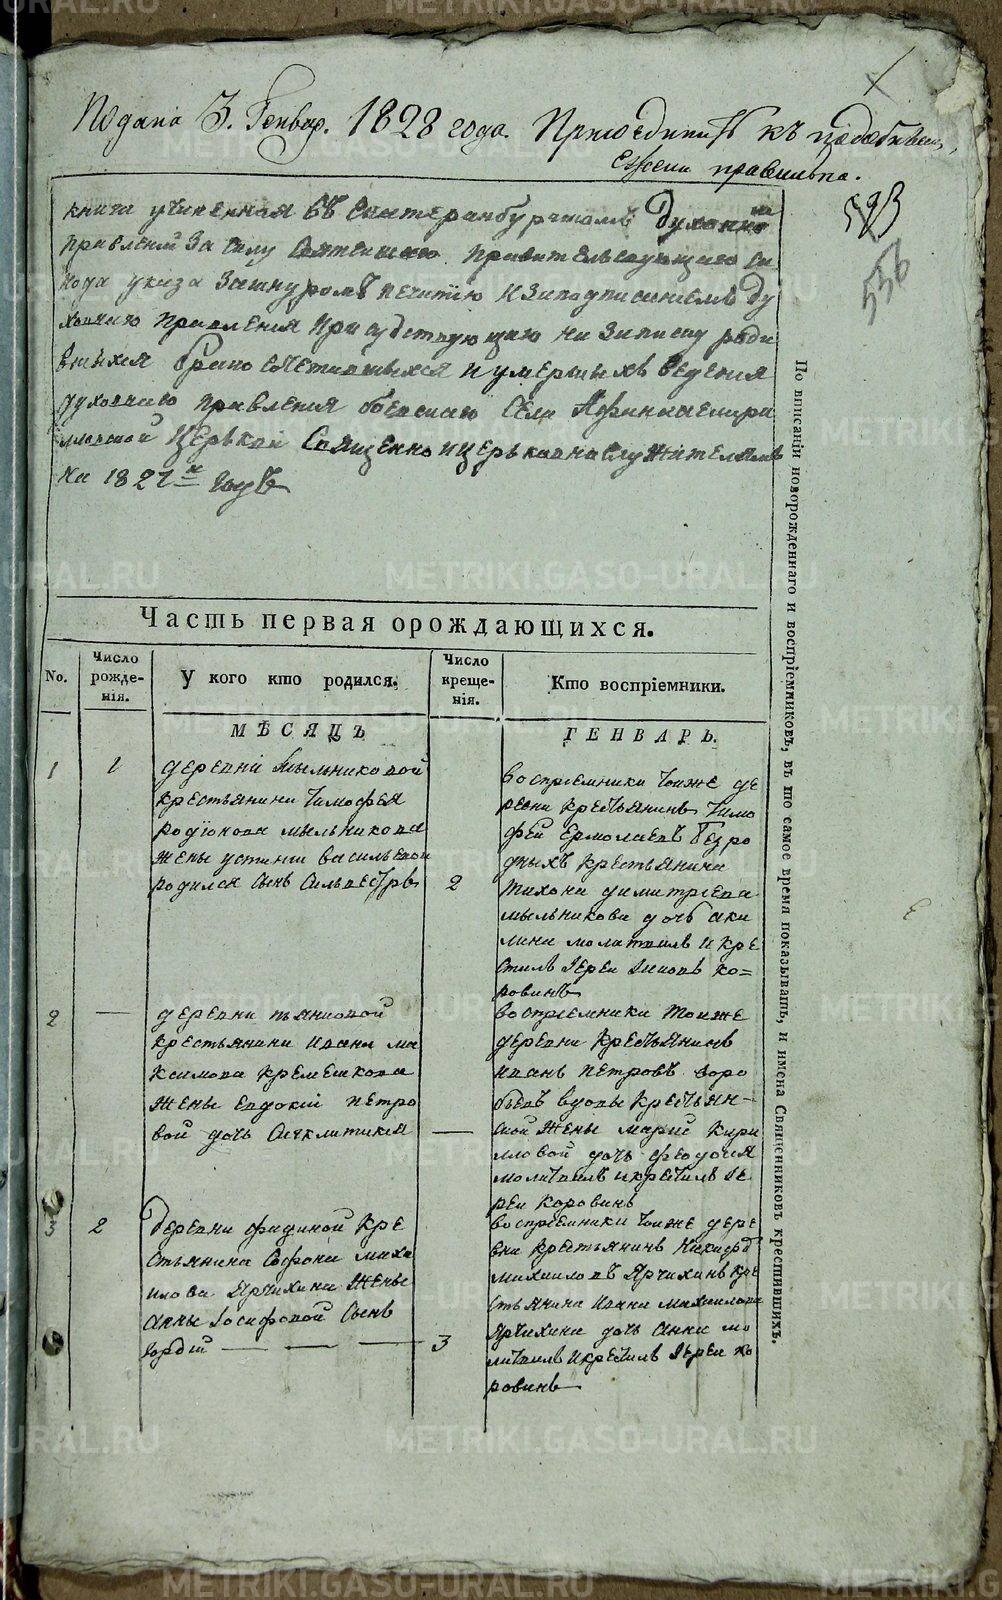 Подана 3. Генвар. 1828 года. Присоединить къ подобнымъ,
если правильна.
593
556
книга учиненная въ Екатеринбургскомъ Духовномъ
правлении За силу Святейшаго правительсвующаго си
нода указа Зашнуромъ печатию изаподписаниемъ ду
ховнаго правления присудствующаго на записку роди
вшихся брако сочетавшихся и умершихъ ведения
духовнаго правления
церькви Священно ицерьковнослужителямъ
на 1827 годъ
Часть первая орождающихся.
No. Число рожденія. У кого кто родился. Число крещенія. Кто воспріемники.
МѢСЯЦЪ ГЕНВАРЬ.
1 1 деревни Мыльниковой
крестьянина тимофея
родионова мыльникова
жены устинии васильевой
родился сынъ Сильвестръ 2
воспрiемники тоиже де
ревни крестьянинъ тимо
фей Ермолаевъ Безро
дныхъ крестьянина
тихона димитриева
мыльникова дочь аку
лина молитвилъ и кре
стилъ Iереи ко=
ровинъ
2 — деревни
крестьянина ивана ма
ксимова кремешкова
жены евдокии петро
вой дочь Синклитикия —
воспрiемники тоиже
деревни крестьянинъ
иванъ петровъ воро
бьевъ вдовы крестьян-
ской жены марии кири
ловой дочь феодосия
молитвилъ икрестилъ Iе
реи коровинъ
3 2 деревни фадиной кре
стьянина Софона миха
илова Ярчихина жены
анны Iосифовой сынъ
гордiй — — — 3
воспрiемники тоиже дере
вни крестьянинъ Никифоръ
михаиловъ Ярчихинъ кре
стьянина ивана михаилова
Ярчихина дочь анна мо
литвилъ икрестилъ Iереи ко
ровинъ
По вписаніи новорожденнаго и воспріемниковъ, въ то самое время показывать, и имена Священниковъ крестившихъ.
METRIKI.GASO-URAL.RU